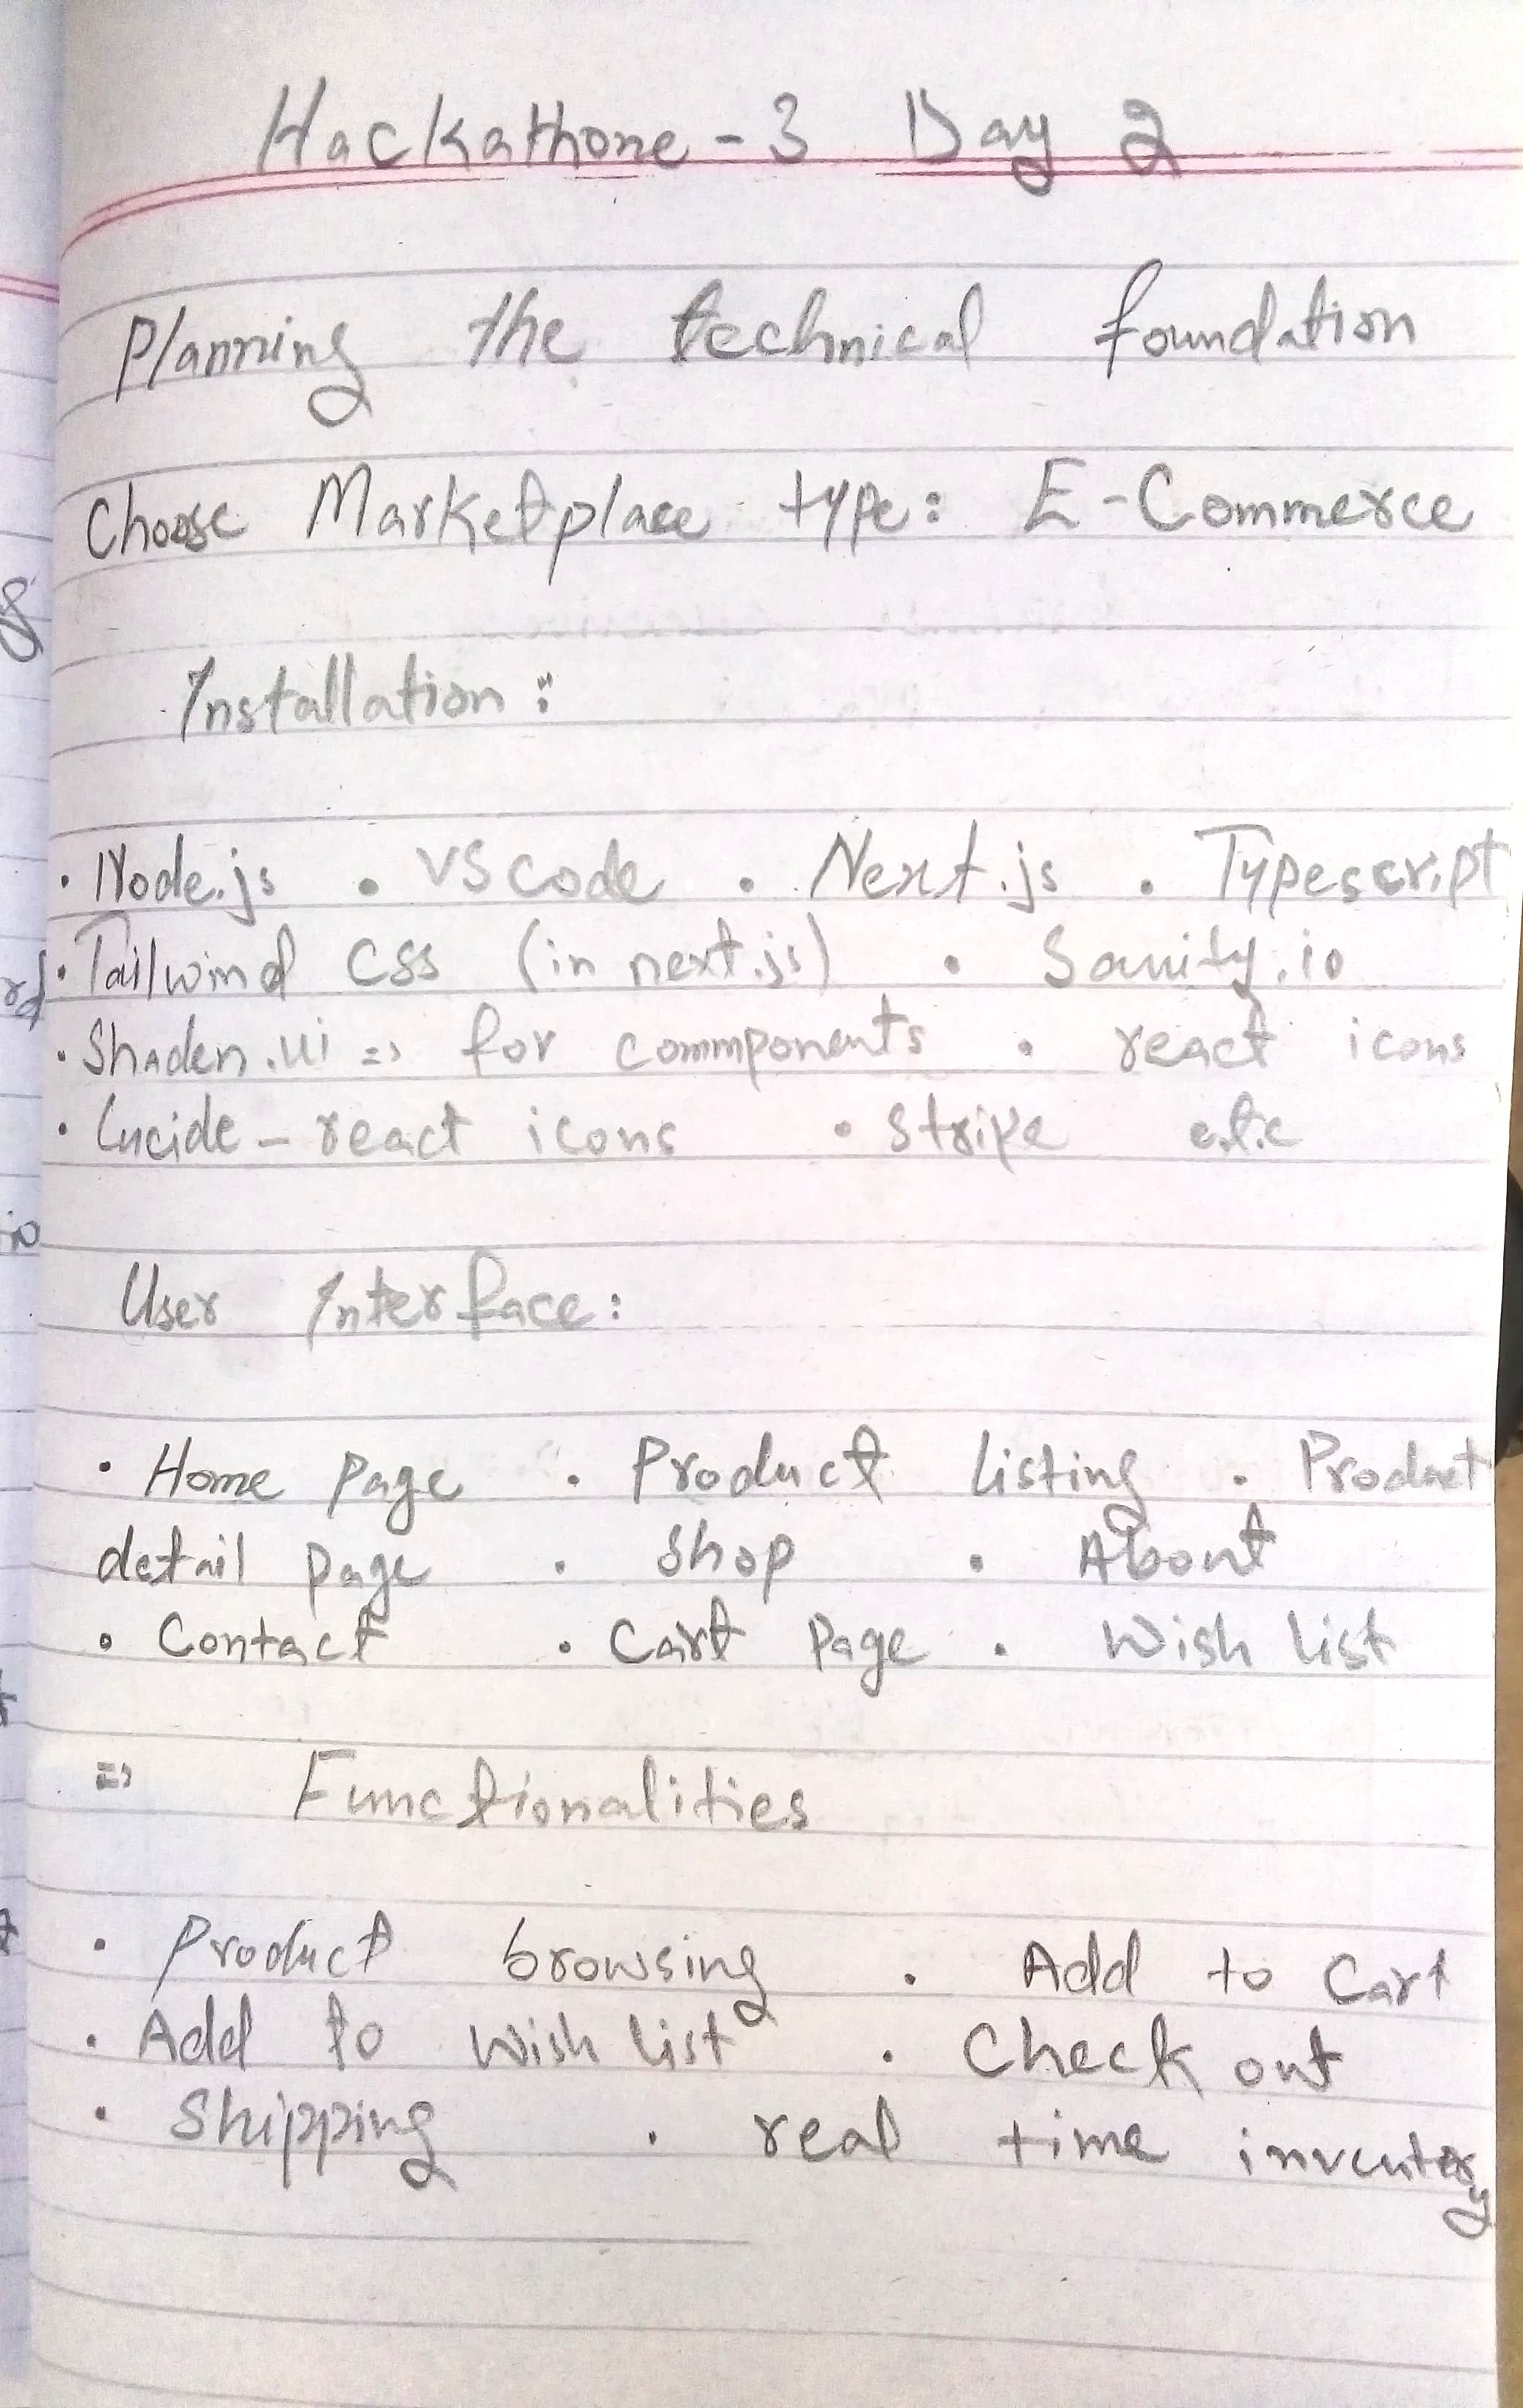 Hackathone - 3 Day 2
Planning the technical foundation
Choose Marketplace type: E-Commerce
Installation:
• Node.js • VS code • Next.js • Typescript
• Tailwind CSS (in next.js) • Sanity.io
• Shaden.ui => for commponents • react icons
• Lucide - react icons • Stripe e.t.c
User Interface:
• Home Page • Product listing • Product
detail page • Shop • About
• Contact • Cart Page • Wish list
=> Functionalities
• Product browsing • Add to Cart
• Add to Wish list • Check out
• Shipping • real time inventory